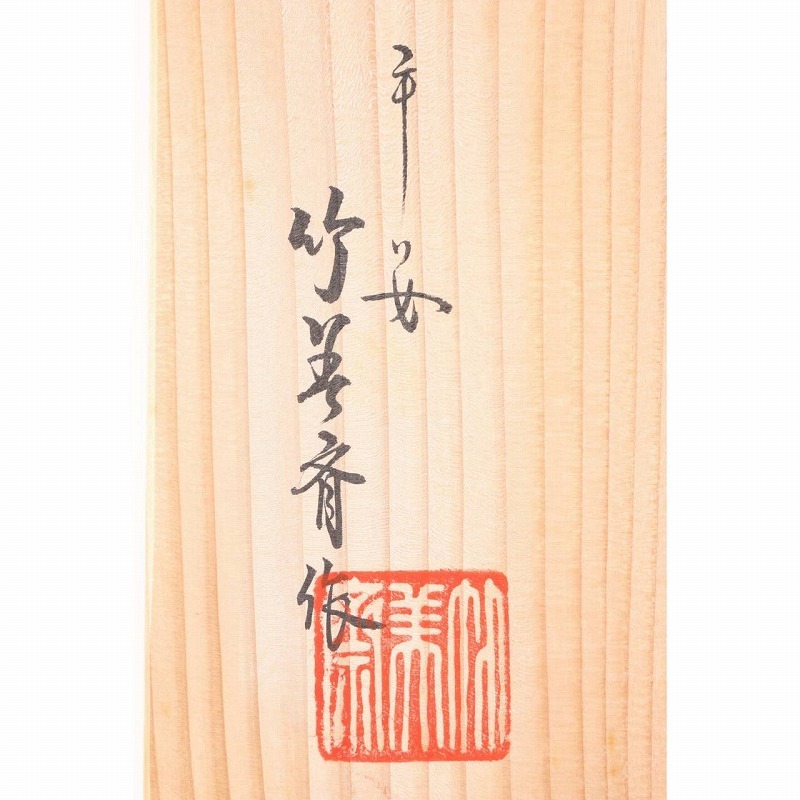 平安
竹美斎作
竹美斎